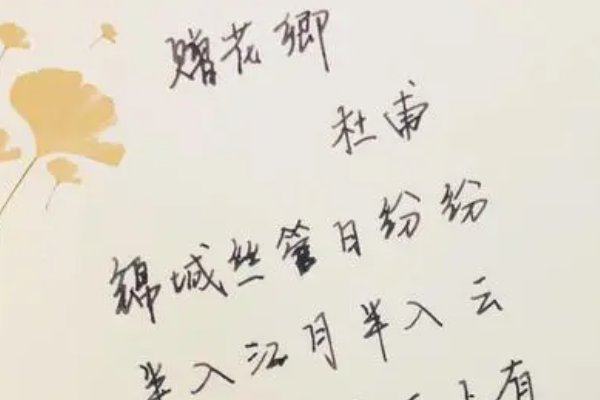 赠花卿
杜甫
锦城丝管日纷纷
半入江月半入云
上有